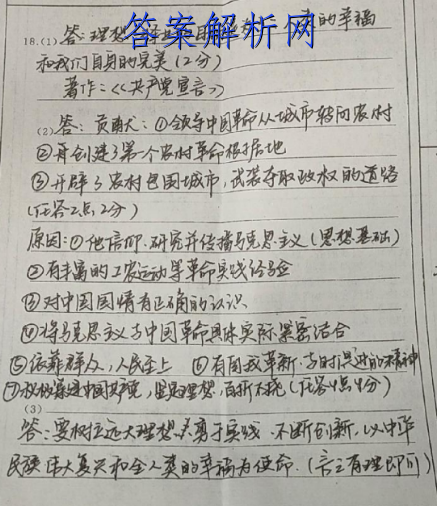 答案解析网
18.(1)答:理想 的幸福
和我们自身的完美(2分)
著作:《共产党宣言》
(2)答:贡献:①领导中国革命从城市转向农村
②再创建了第一个农村革命根据地
③开辟了农村包围城市,武装夺取政权的道路
(任答2点2分)
原因:①他信仰、研究并传播马克思主义(思想基础)
②有丰富的工农运动等革命实践经验
③对中国国情有正确的认识
④将马克思主义与中国革命具体实际紧密结合
⑤依靠群众,人民至上 ⑥有自我革新、与时俱进的精神
⑦ 中国共产党,坚定理想,百折不挠(任答4点4分)
(3)
答:要树立远大理想,勇于实践,不断创新,以中华
民族伟大复兴和全人类的幸福为使命.(言之有理即可)